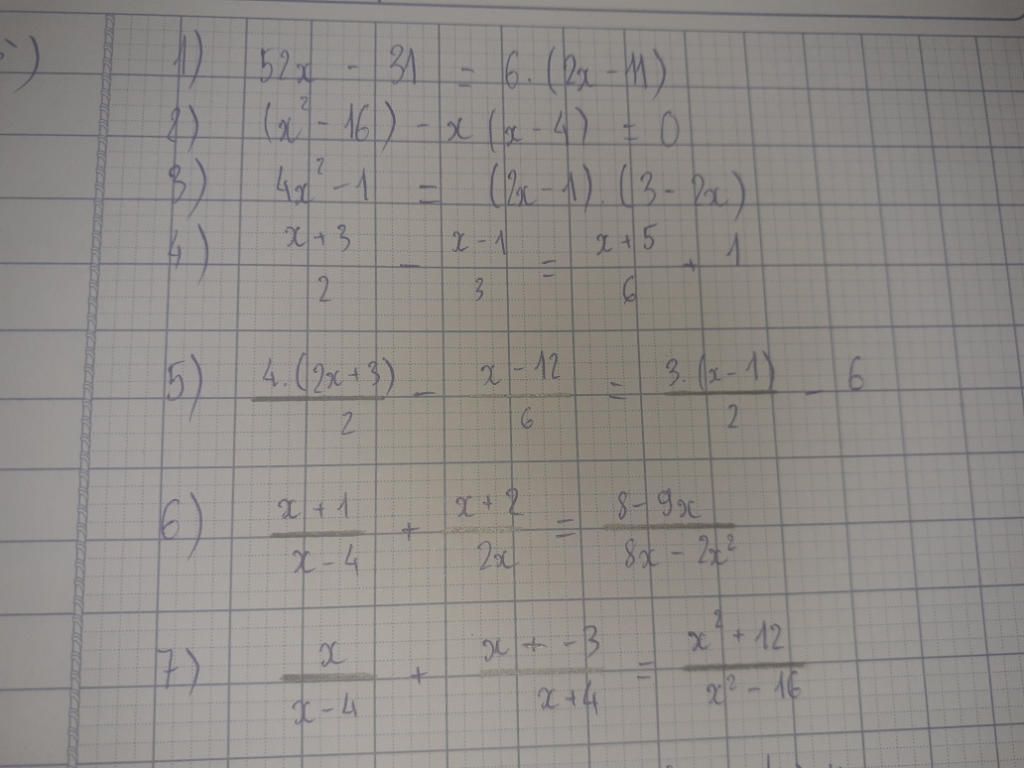 1) 52x - 31 = 6.(2x - 11)
2) (x² - 16) - x (x - 4) = 0
3) 4x² - 1 = (2x - 1).(3 - 2x)
4) x + 3 / 2 - x - 1 / 3 = x + 5 / 6 + 1
5) 4.(2x + 3) / 2 - x - 12 / 6 = 3.(x - 1) / 2 - 6
6) x + 1 / x - 4 + x + 2 / 2x = 8 - 9x / 8x - 2x²
7) x / x - 4 + x + - 3 / x + 4 = x² + 12 / x² - 16